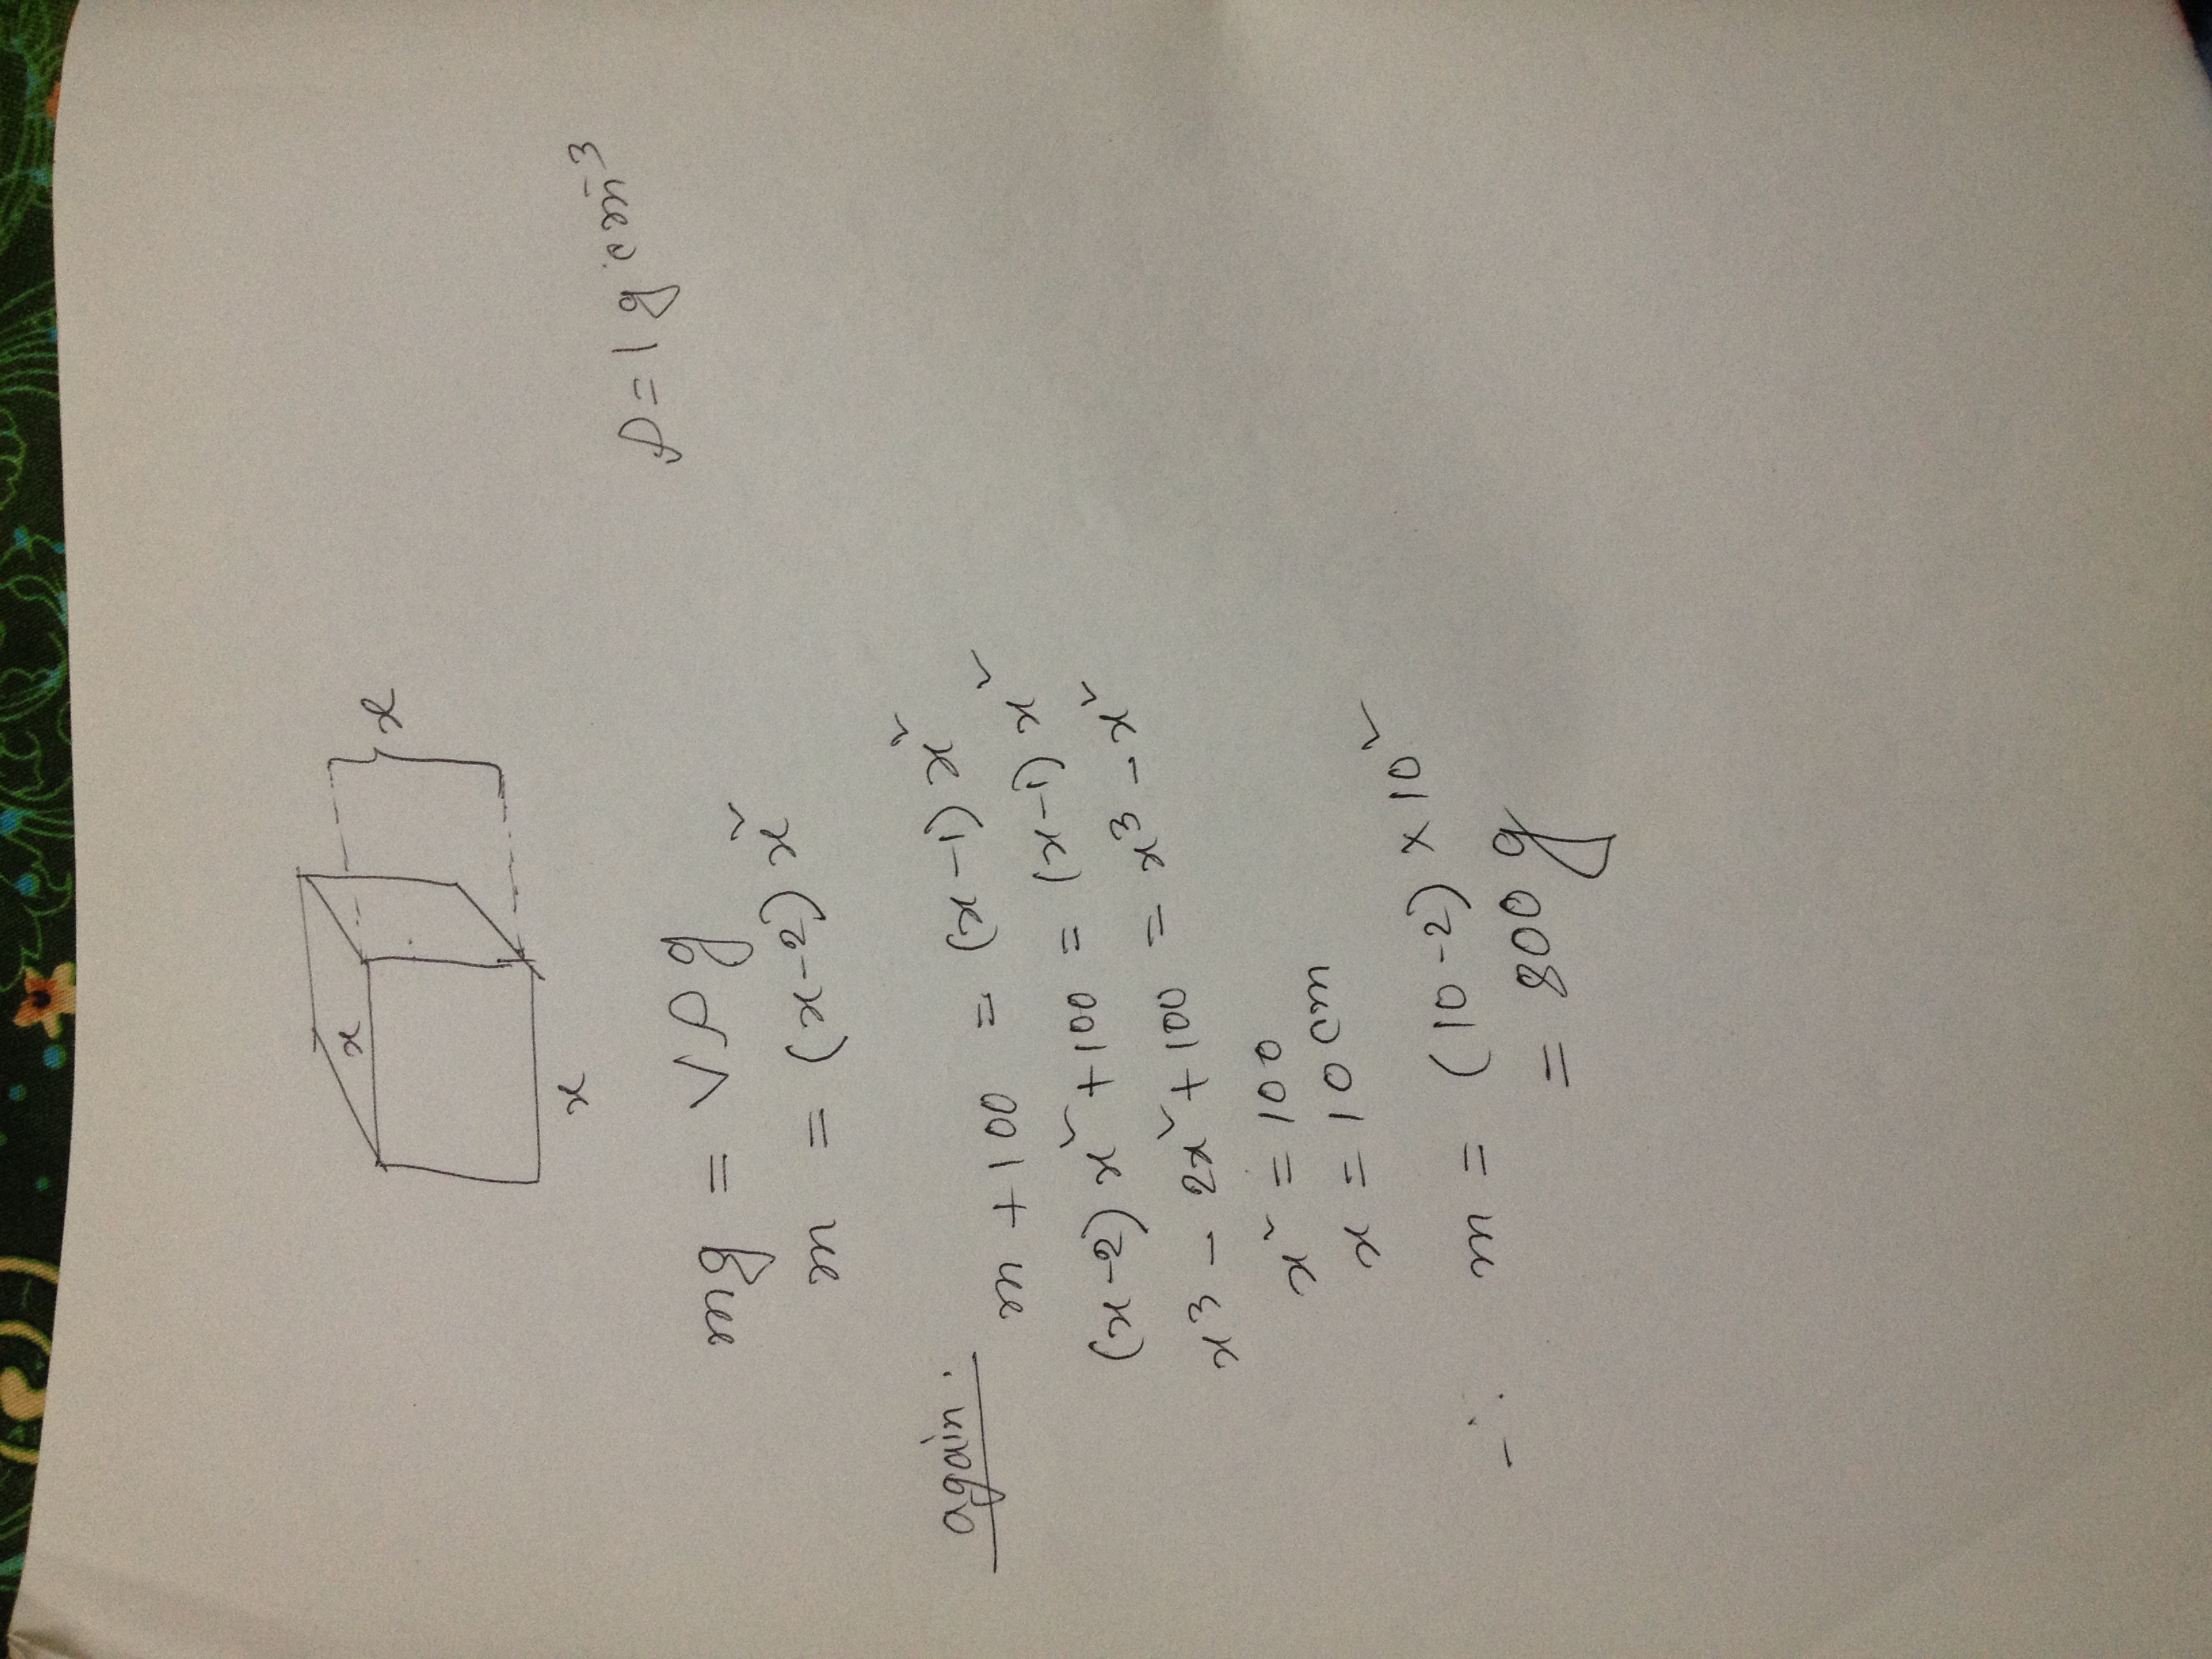 x
x
x
ρ = 1 g cm⁻³
mg = Vρg
m = (x-2) x²
again.
m + 100 = (x-1) x²
(x-2) x² + 100 = (x-1) x²
x³ - 2x² + 100 = x³ - x²
x² = 100
x = 10 cm
∴ m = (10-2) × 10²
= 800 g